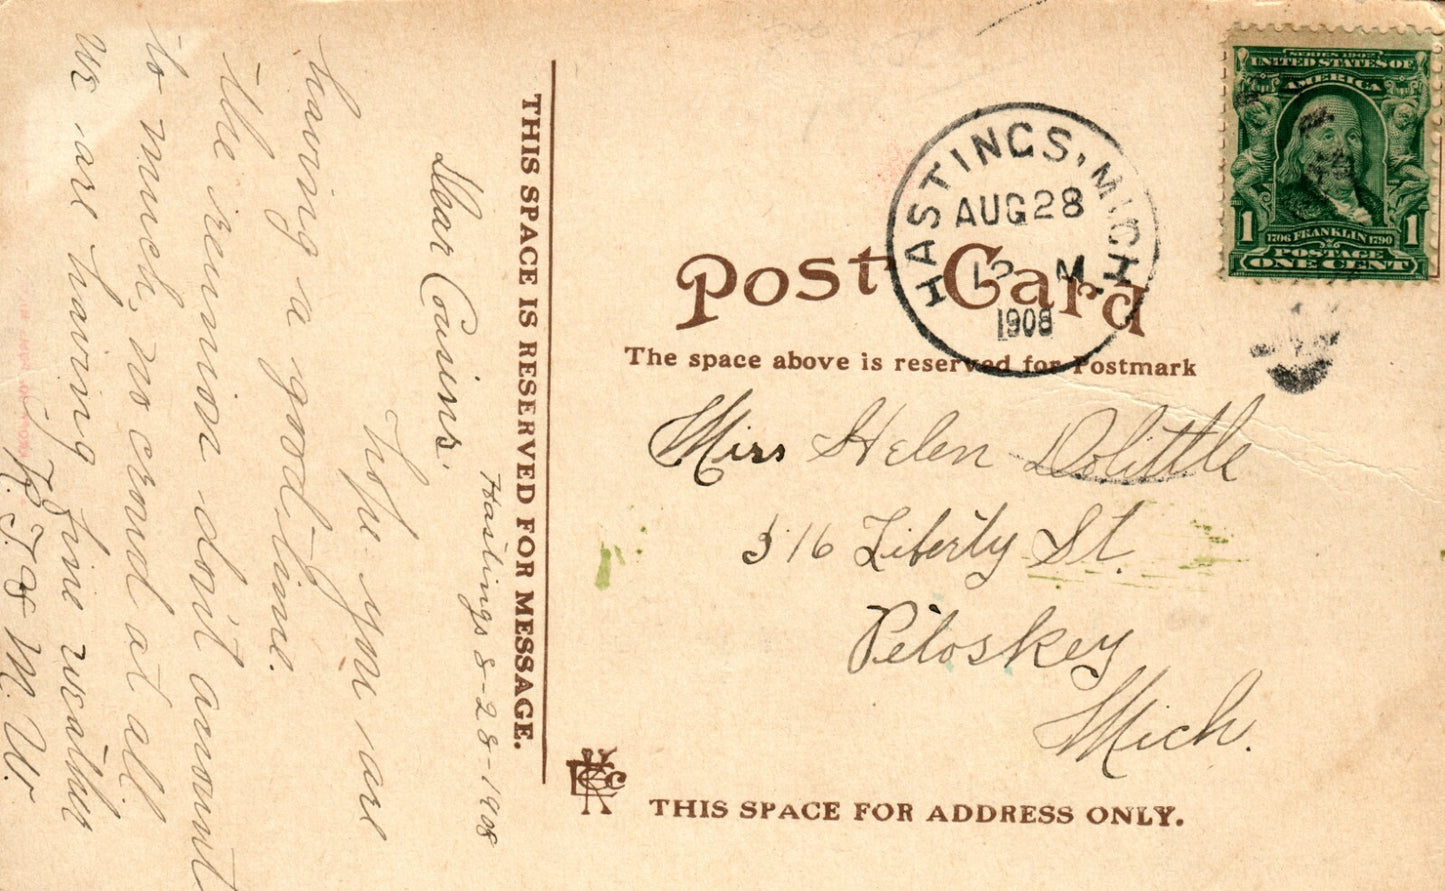 Hastings 8-28-1908
Dear Cousins.
hope you are
having a good time.
the reunion don't amount
to much, no crowd at all
we are having fine weather
M. W.
THIS SPACE IS RESERVED FOR MESSAGE.
Post Card
The space above is reserved for Postmark
HASTINGS, MICH.
AUG 28
12 M
1908
SERIES 1902
UNITED STATES OF
AMERICA
1706 FRANKLIN 1790
1 1
POSTAGE
ONE CENT
Miss Helen Dolittle
316 Liberty St.
Petoskey
Mich.
THIS SPACE FOR ADDRESS ONLY.